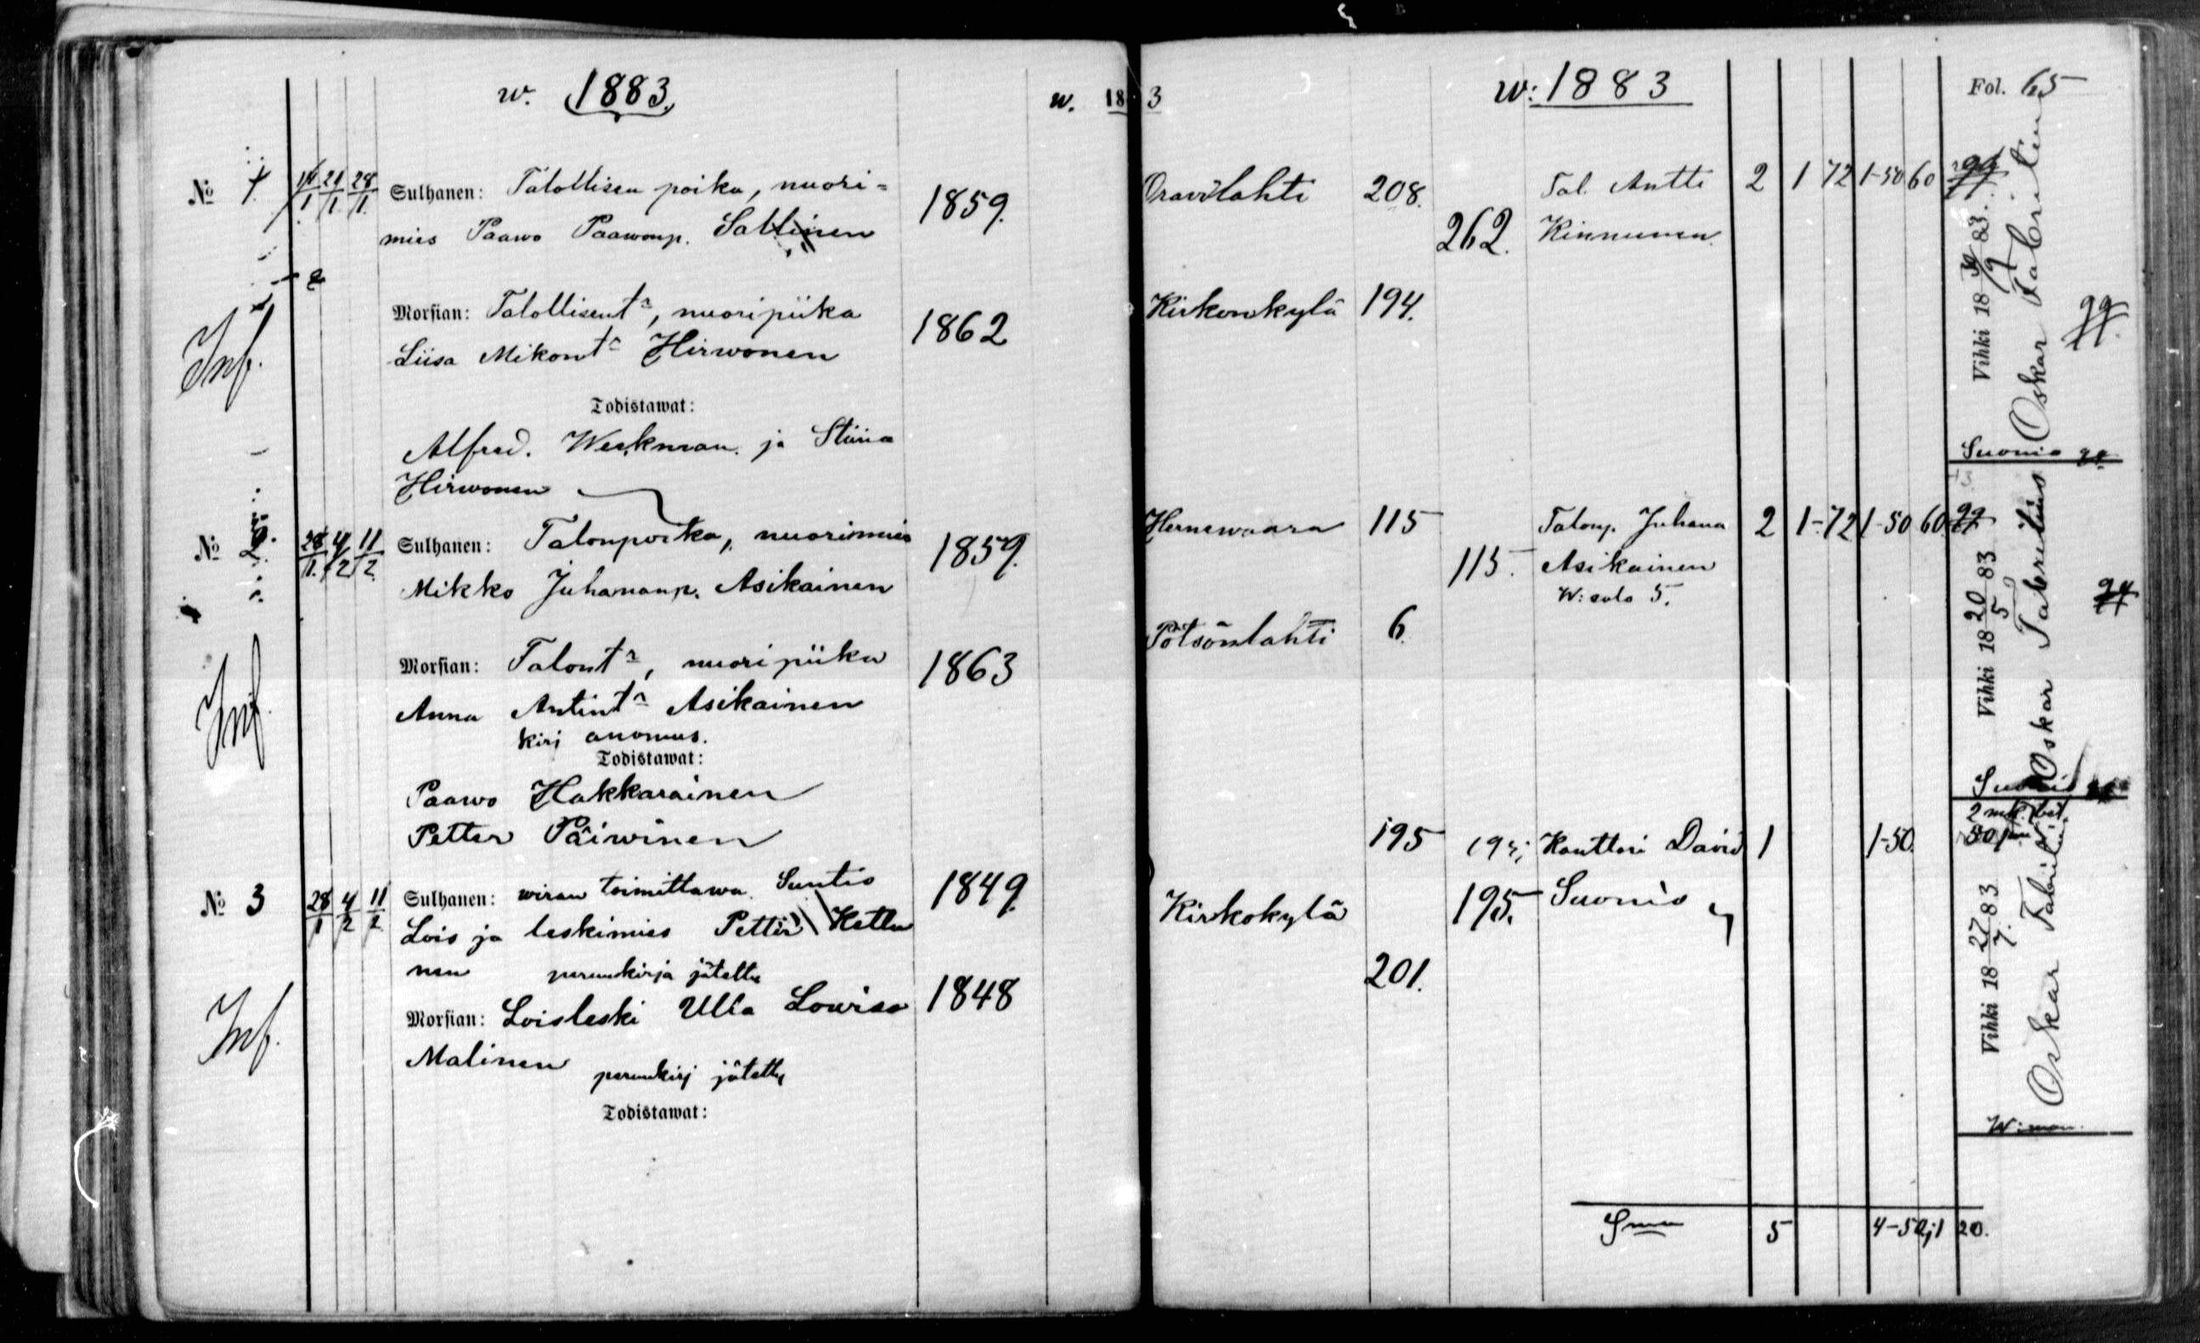 w. 1883.
w. 18 3
w: 1883
Fol. 65
№ 1. 14/1 21/1 28/1 Sulhanen: Talollisen poika, nuori=
mies Paawo Paawonp. Sallinen
1859.
Orawilahti 208. 262. Tal. Antti
Kinnunen
2 1 72 1-50 60
Inf.
Morsian: Talollisent^r, nuoripiika
Liisa Mikont^r Hirwonen
1862
Kirkonkylä 194.
Todistawat:
Alfred. Werkman ja Stiina
Hirwonen
Vihki 18 83
Oskar Fabritius
Suonio
№ 2. 28/1 4/2 11/2 Sulhanen: Talonpoika, nuorimies
Mikko Juhananp. Asikainen
1859.
Hernewaara 115 115. Talonp. Juhana
Asikainen
2 1-72 1-50 60
Inf.
Morsian: Talont^r, nuoripiika
Anna Antint^r Asikainen
kirj anomus.
1863
Pötsönlahti 6.
Todistawat:
Paawo Hakkarainen
Petter Päiwinen
Vihki 18 20/5 83
Oskar Fabritius
№ 3 28/1 4/2 11/2 Sulhanen: wiran toimittawa Suntio
Lois ja leskimies Petter Kettu
nen perunkirja jätetty
1849.
Kirkokylä 195 195. Kanttori David
Suonio
1 1-50.
Inf.
Morsian: Loisleski Ulla Lowisa
Malinen perunkirj jätetty
1848
201.
Todistawat:
Vihki 18 27/7. 83
Oskar Fabritius
Sma 5 4-50 1 20.